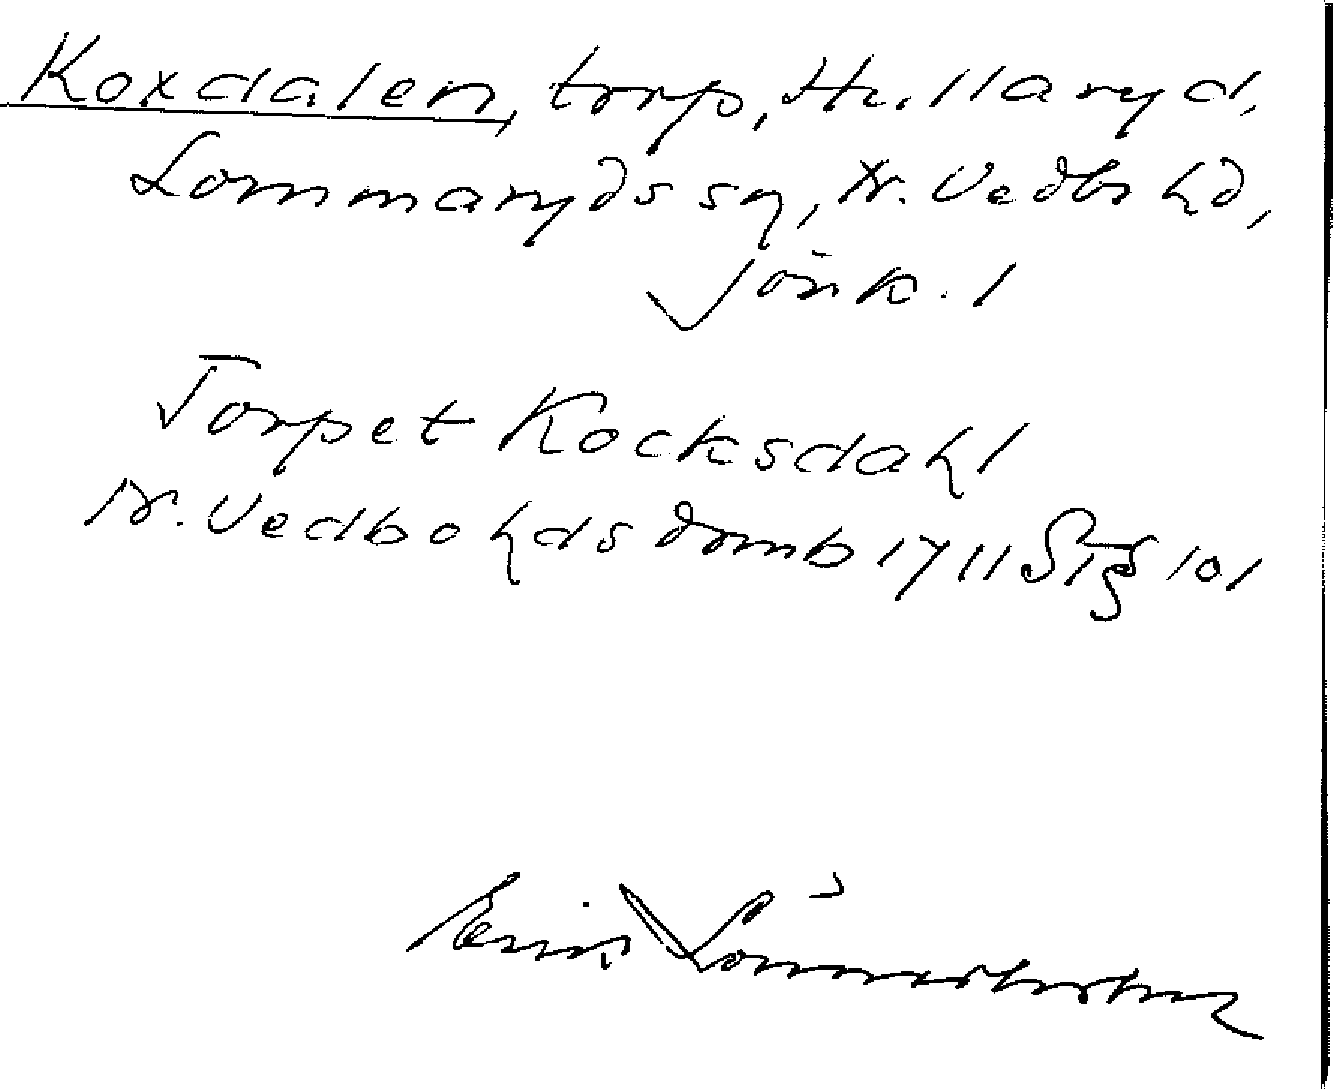 Koxdalen, torp, Hullaryd,
Lommaryds sn, N. Vedbo hd,
Jönk. l
Torpet Kocksdahl
N. Vedbo hds domb 1711 Stg 101